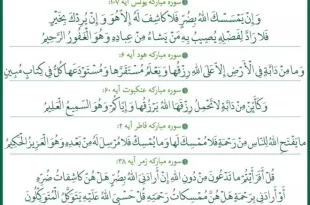 سوره مبارکه یونس آیه ۱۰۷:
وَ إِنْ یَمْسَسْكَ اللهُ بِضُرٍّ فَلا كاشِفَ لَهُ إِلاَّ هُوَ وَ إِنْ یُرِدْكَ بِخَیْرٍ
فَلا رَادَّ لِفَضْلِهِ یُصیبُ بِهِ مَنْ یَشاءُ مِنْ عِبادِهِ وَ هُوَ الْغَفُورُ الرَّحیمُ
سوره مبارکه هود آیه ۶:
وَ ما مِنْ دَابَّةٍ فِی الْأَرْضِ إِلاَّ عَلَی اللهِ رِزْقُها وَ یَعْلَمُ مُسْتَقَرَّها وَ مُسْتَوْدَعَها كُلٌّ فی كِتابٍ مُبینٍ
سوره مبارکه عنکبوت آیه ۶۰:
وَ كَأَیِّنْ مِنْ دَابَّةٍ لا تَحْمِلُ رِزْقَهَا اللهُ یَرْزُقُها وَ إِیَّاكُمْ وَ هُوَ السَّمیعُ الْعَلیمُ
سوره مبارکه فاطر آیه ۲:
ما یَفْتَحِ اللهُ لِلنَّاسِ مِنْ رَحْمَةٍ فَلا مُمْسِكَ لَها وَ ما یُمْسِكْ فَلا مُرْسِلَ لَهُ مِنْ بَعْدِهِ وَ هُوَ الْعَزیزُ الْحَكیمُ
سوره مبارکه زمر آیه ۳۸:
قُلْ أَ فَرَأَیْتُمْ ما تَدْعُونَ مِنْ دُونِ اللهِ إِنْ أَرادَنِیَ اللهُ بِضُرٍّ هَلْ هُنَّ كاشِفاتُ ضُرِّهِ
أَوْ أَرادَنی بِرَحْمَةٍ هَلْ هُنَّ مُمْسِكاتُ رَحْمَتِهِ قُلْ حَسْبِیَ اللهُ عَلَیْهِ یَتَوَكَّلُ الْمُتَوَكِّلُونَ